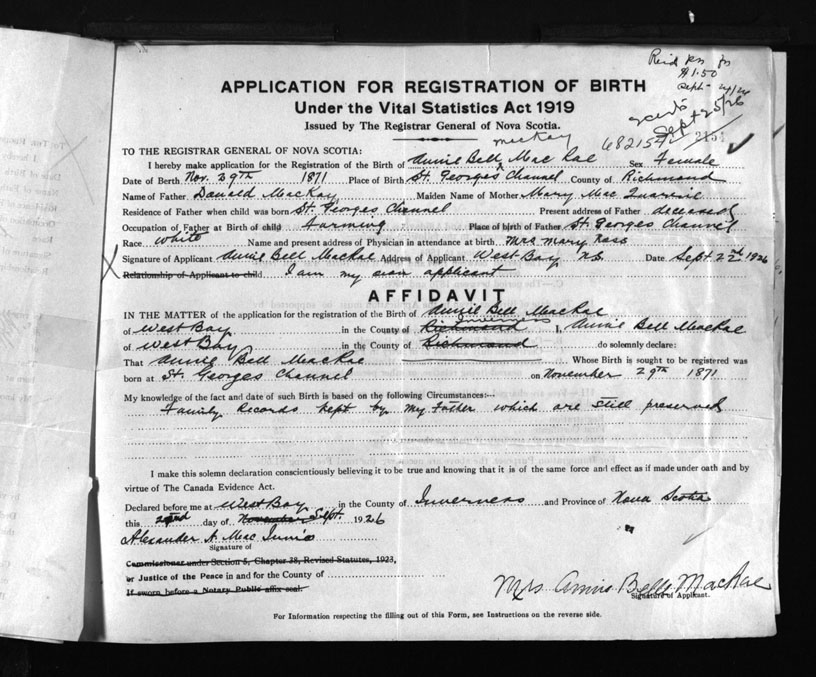 Reid
$1.50
Sept-
APPLICATION FOR REGISTRATION OF BIRTH
Under the Vital Statistics Act 1919
Issued by The Registrar General of Nova Scotia.
Sept 25/26
682154
TO THE REGISTRAR GENERAL OF NOVA SCOTIA:
McKay
I hereby make application for the Registration of the Birth of Annie Bell MacRae Sex Female
Date of Birth Nov. 29th 1871 Place of Birth St. Georges Channel County of Richmond
Name of Father Donald MacKay Maiden Name of Mother Mary Mac
Residence of Father when child was born St. Georges Channel Present address of Father deceased
Occupation of Father at Birth of child Farming Place of birth of Father St. Georges Channel
Race white Name and present address of Physician in attendance at birth Mrs Mary Ross
Signature of Applicant Annie Bell MacRae Address of Applicant West Bay N.S. Date Sept 22nd 1926
Relationship of Applicant to child I am my own applicant
AFFIDAVIT
IN THE MATTER of the application for the registration of the Birth of Annie Bell MacRae
Inverness
of West Bay in the County of Richmond I, Annie Bell MacRae
of West Bay in the County of Richmond do solemnly declare:
That Annie Bell MacRae Whose Birth is sought to be registered was
born at St. Georges Channel on November 29th 1871
My knowledge of the fact and date of such Birth is based on the following Circumstances:--
Family Records kept by My Father which are still preserved
I make this solemn declaration conscientiously believing it to be true and knowing that it is of the same force and effect as if made under oath and by
virtue of The Canada Evidence Act.
Declared before me at West Bay in the County of Inverness and Province of Nova Scotia
this day of November Sept. 1926
Alexander A. Mac Innis
Signature of
Commissioner under Section 5, Chapter 38, Revised Statutes, 1923,
or Justice of the Peace in and for the County of
If sworn before a Notary Public affix seal.
Mrs Annie Belle MacRae
Signature of Applicant.
For Information respecting the filling out of this Form, see Instructions on the reverse side.